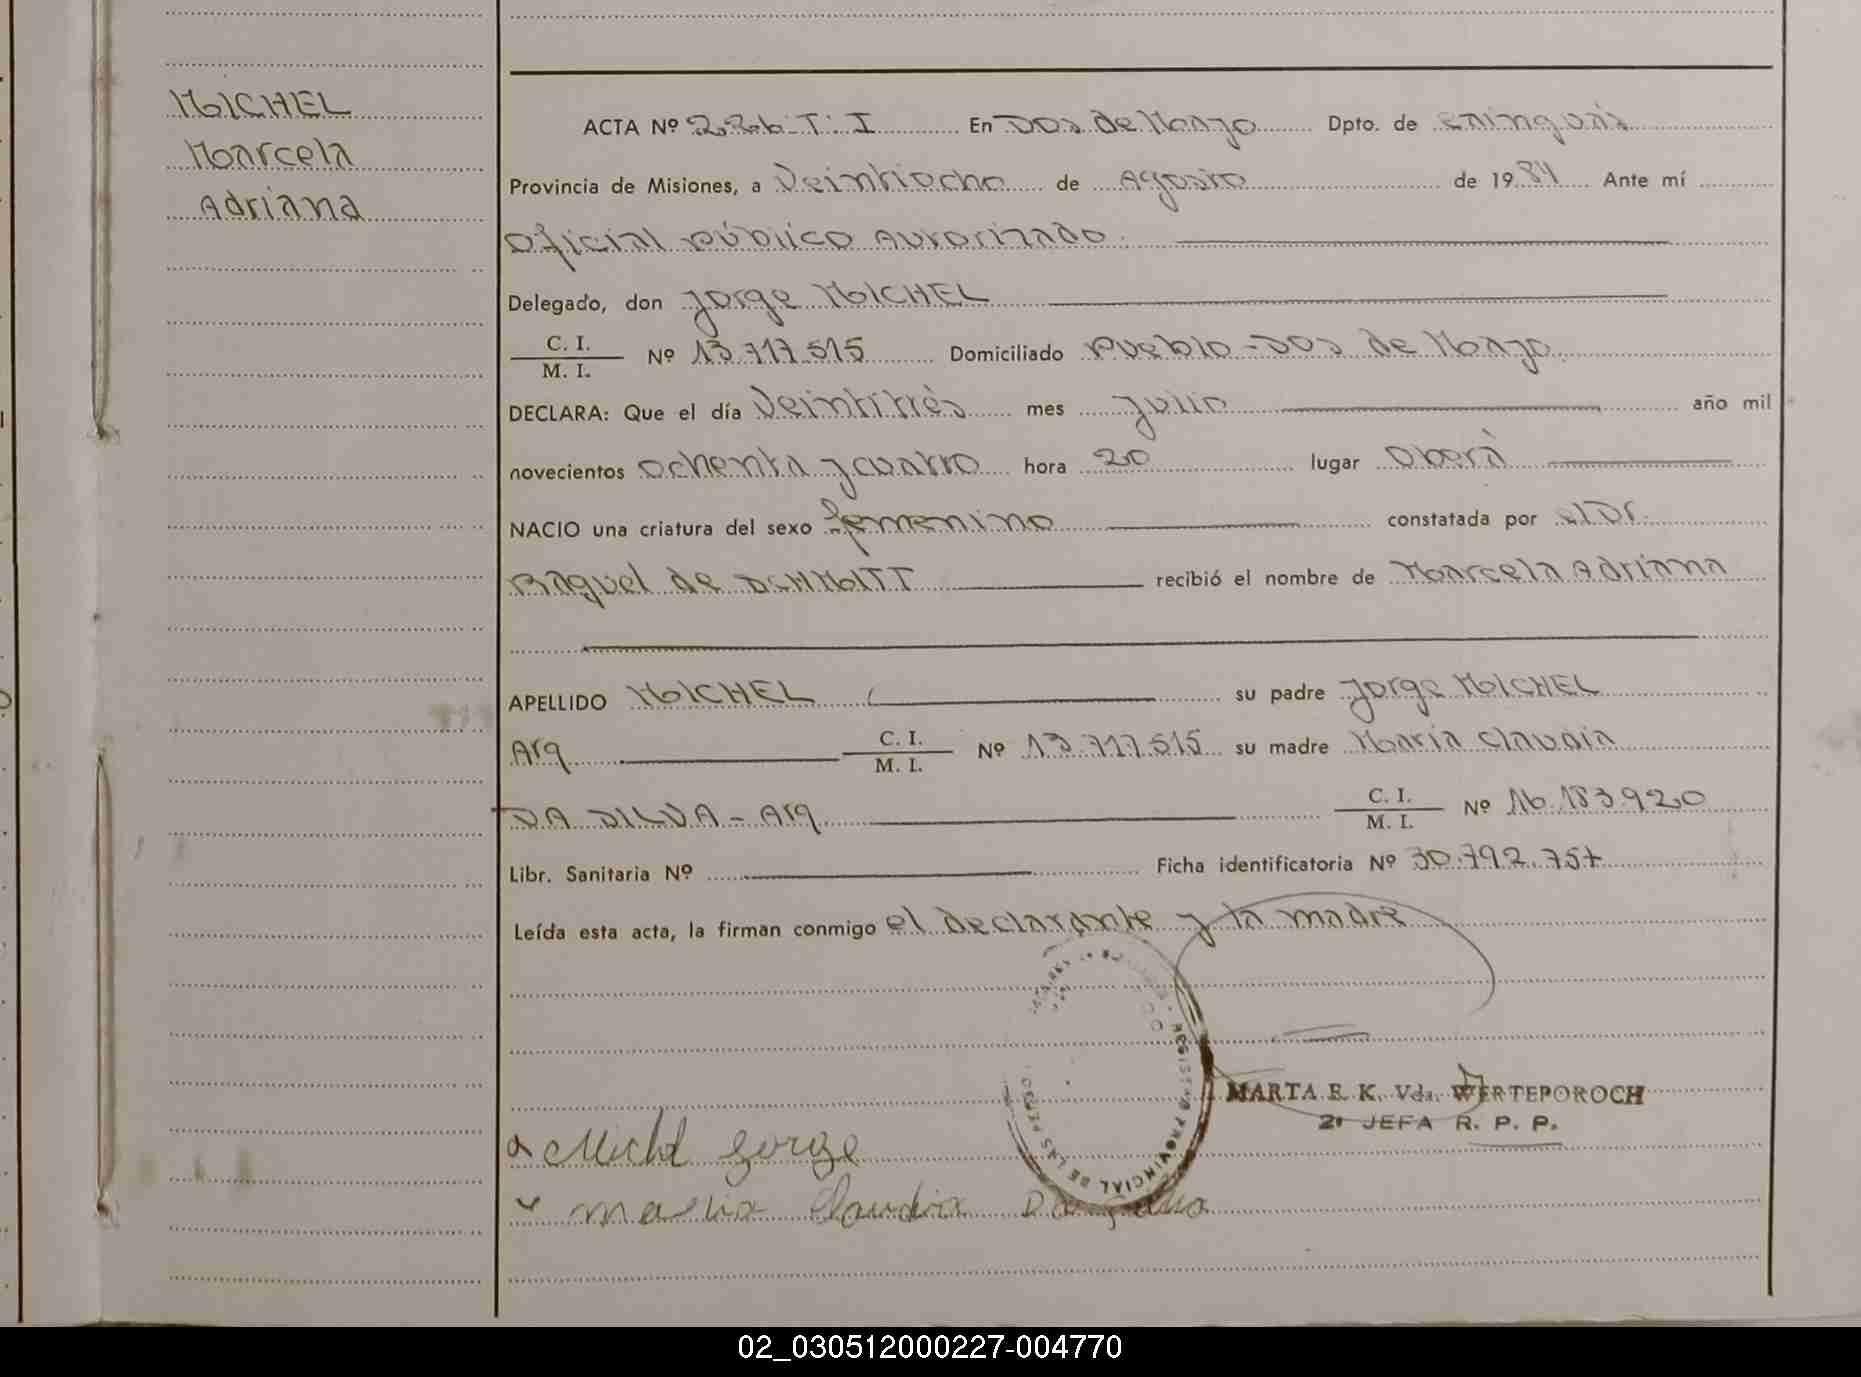 MICHEL
Marcela
Adriana
ACTA Nº 226-T: I En Dos de Mayo Dpto. de Cainguás
Provincia de Misiones, a Veintiocho de Agosto de 1984 Ante mí
Oficial Público Autorizado.
Delegado, don Jorge MICHEL
C. I.
M. I. Nº 13.717.515 Domiciliado Pueblo-Dos de Mayo
DECLARA: Que el día Veintitrés mes Julio año mil
novecientos ochenta y cuatro hora 20 lugar Oberá
NACIO una criatura del sexo femenino constatada por el Dr.
Raquel de SCHMITT recibió el nombre de Marcela Adriana
APELLIDO MICHEL su padre Jorge MICHEL
Arq C. I.
M. I. Nº 13.717.515 su madre María Claudia
DA SILVA - Arq C. I.
M. I. Nº 16.183.920
Libr. Sanitaria Nº Ficha identificatoria Nº 30.792.757
Leída esta acta, la firman conmigo el declarante y la madre
REGISTRO PROVINCIAL DE LAS PERSONAS
MARTA E. K. Vda. WERTEPOROCH
2ª JEFA R. P. P.
Michel Jorge
Maria Claudia Da Silva
02_030512000227-004770